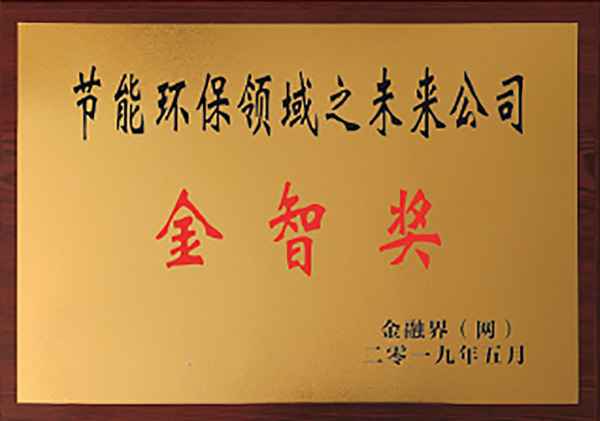 节能环保领域之未来公司
金智奖
金融界（网）
二零一九年五月